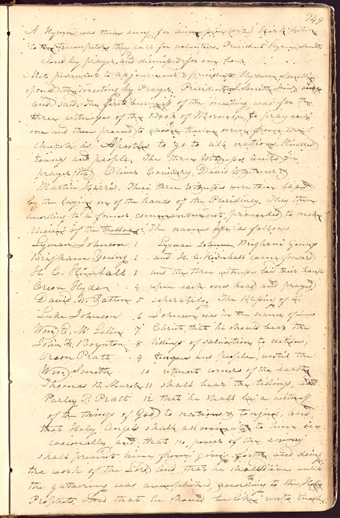 149
A Hymn was then sung
to the
close by prayer, and dismissed for one hour
Met pursuant to adjournment & president
opened the meeting by Prayer. President Smith
and said. The first business of the meeting was for the
three witnesses of the Book of Mormon to pray each
one and then proceed to choose twelve men from the
church as Apostles to go to all nations, kindred
toungs and people. The three Witnesses united in
prayer (viz) Oliver Cowdery, David Whitmer &
Martin Harris. These three Witnesses were then blessed
by the laying on of the hands of the Presidency. They then
according to a former commandment, proceeded to make
choice of the twelve. The names are as follows
Lyman Johnson 1 Lyman Johnson, Brigham Young
Brigham Young 2 and H. C. Kimball came forward
H. C. Kimball 3 and the three witnesses laid their hands
Orson Hyde 4 upon each ones head and prayed
David W. Patten 5 seperately. The blessing of L.
Luke Johnson 6 Johnson was in the name of Jesus
Wm E. McLellin 7 Christ, that he should bear the
John F. Boynton 8 tidings of salvation to nations,
Orson Pratt 9 toungs and people, until the
Wm Smith 10 utmost corners of the earth
Thomas B. Marsh 11 shall hear the tidings, and
Parley P. Pratt 12 that he shall be a witness
of the things of God to nations & tongues, and
that Holy Angels shall administer to him oc-
casionally and that no power of the enemy
shall prevent him from going forth and doing
the work of the Lord and that he shall live until
the gathering was accomplished, according to the Holy
Prophets, and that he should be like unto Enoch